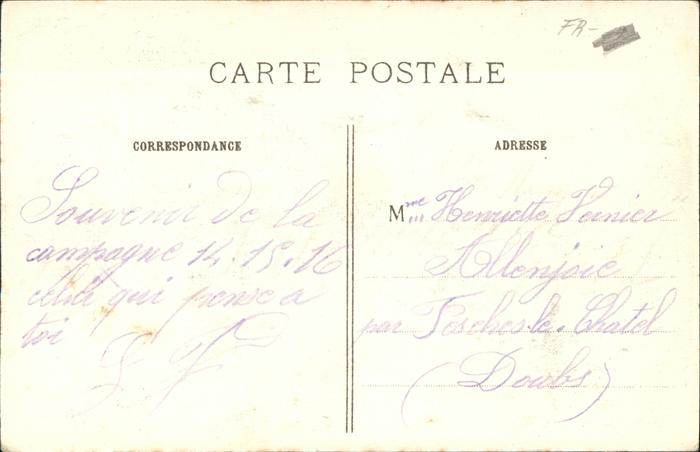 FR-
CARTE POSTALE
CORRESPONDANCE
Souvenir de la
campagne 14.15.16
celui qui pense a
toi
ADRESSE
Mme Henriette Vernier
Allenjoie
par Fesches-le-Chatel
(Doubs)